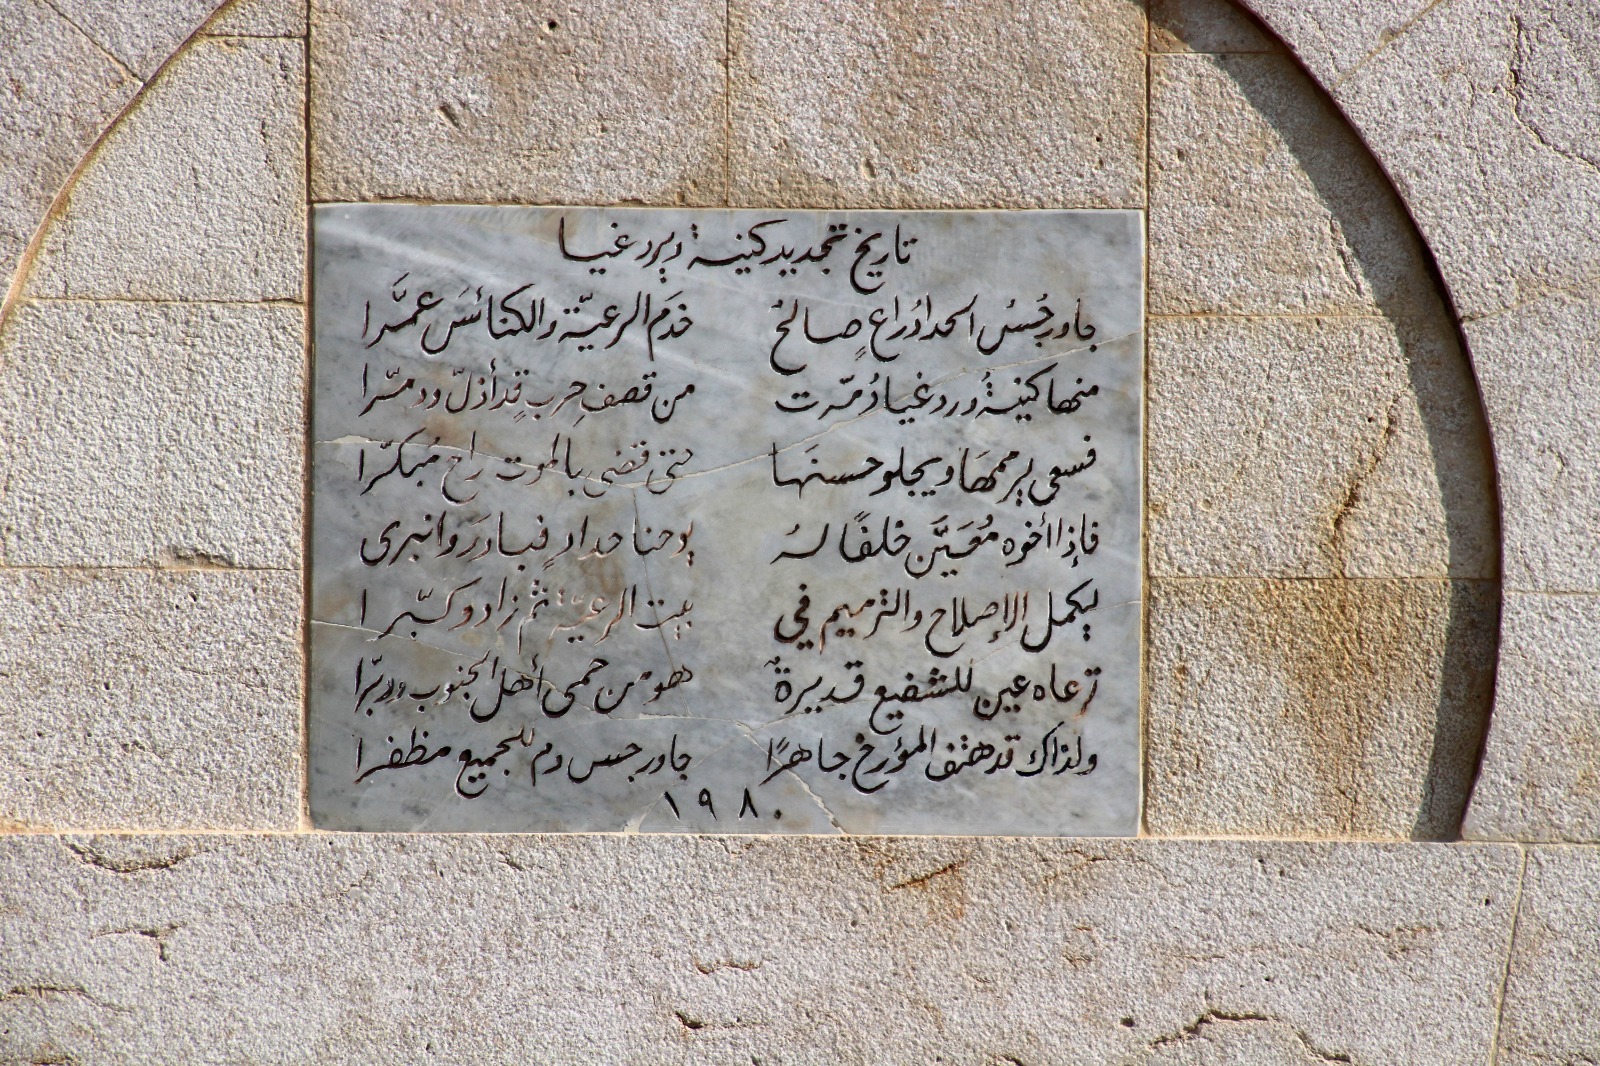 تاريخ تجديد كنيسة دير دغيا
جاورجُسُ الحدادُ راعٍ صالحُ خدَمَ الرعيّة والكنائسَ عمَّرا
منها كنيسةُ دردغيا دُمّرت من قصفِ حربٍ قد أذلّ ودمّرا
فسعى يرممهَا ويجلو حسنهَا حتى قضى بالموت راح مُبكّرا
فإذا أخوه مُعَيَّن خلفًا لهُ يوحنا حدادٍ فبادرَ وانبرى
ليكمل الإصلاح والترميم في بيت الرعيّة ثم زاد وكبّرا
ترعاه عين للشفيع قديرةٌ هو من حمى أهل الجنوب ودبّرا
ولذاك قد هتف المؤرخ جاهرًا جاورجس دم للجميع مظفرا
١٩٨٠